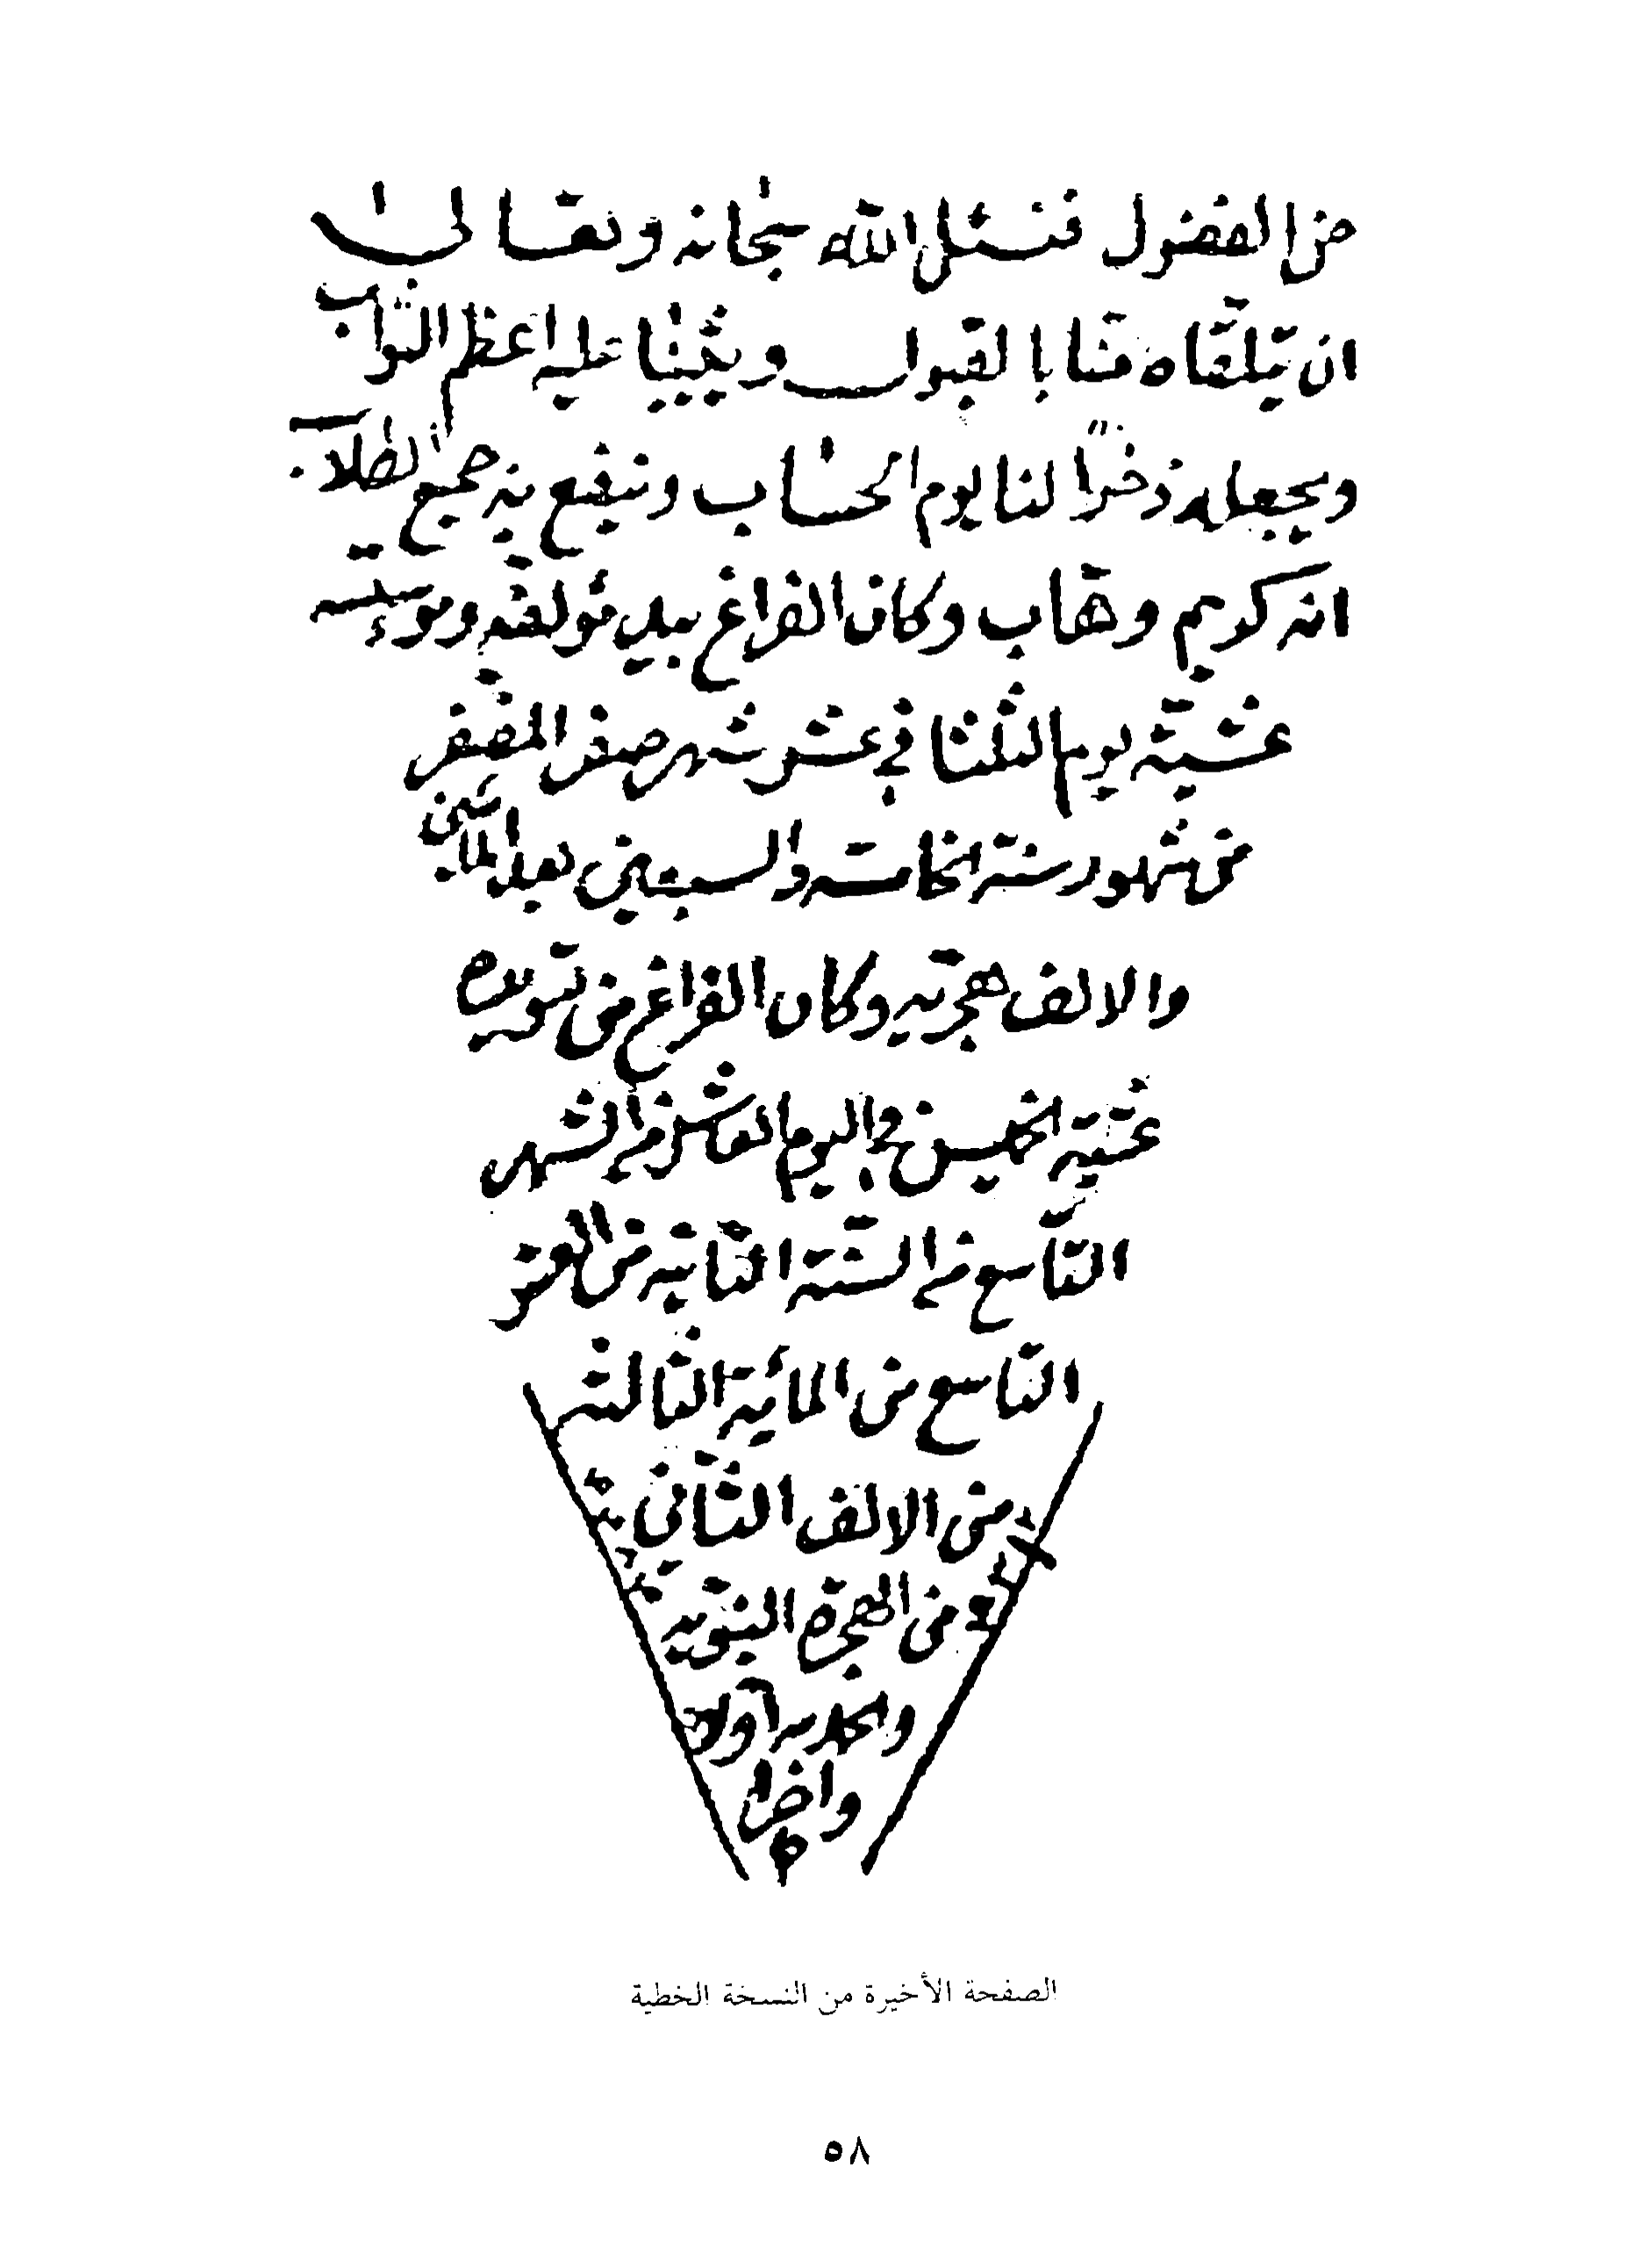 من الفضول فنسئل الله سبحانه وتعالى
ان يتلقاه منا بالقبول ويثيبنا عليه اعظم الثواب
ويجعله ذخرًا لنا يوم الحساب وينفع به جميع الطلاب
انه كريم وهاب وكان الفراغ بيد مؤلفه ومؤسسه
عشية يوم الثلثا في عشر شهر صفر المظفر
من شهور سنة الخامسة والسبعين بعد المأتين
والالف هجرته وكان الفراغ من تسويده
عشية الخميس في اليوم العاشر من الشهر
التاسع من السنة الثانية من العشر
التاسع من المائة الثالثة
من الالف الثاني
من الهجرة النبوية
والحمد لله اولا
واخرا
الصفحة الأخيرة من النسخة الخطية
٥٨